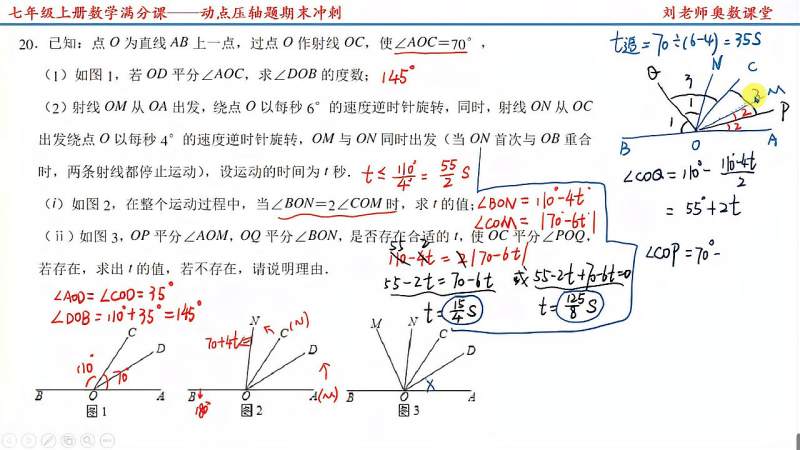 七年级上册数学满分课——动点压轴题期末冲刺
刘老师奥数课堂
20．已知：点 O 为直线 AB 上一点，过点 O 作射线 OC，使∠AOC=70°，
（1）如图 1，若 OD 平分∠AOC，求∠DOB 的度数；145°
（2）射线 OM 从 OA 出发，绕点 O 以每秒 6° 的速度逆时针旋转，同时，射线 ON 从 OC
出发绕点 O 以每秒 4° 的速度逆时针旋转，OM 与 ON 同时出发（当 ON 首次与 OB 重合
时，两条射线都停止运动），设运动的时间为 t 秒．t≤110°/4° = 55/2 S
（i）如图 2，在整个运动过程中，当∠BON=2∠COM 时，求 t 的值；
∠BON = 110°-4t°
∠COM = |70°-6t°|
（ii）如图 3，OP 平分∠AOM，OQ 平分∠BON，是否存在合适的 t，使 OC 平分∠POQ，
若存在，求出 t 的值，若不存在，请说明理由．
55 2
110-4t = 2|70-6t|
55-2t = 70-6t 或 55-2t+70-6t=0
t = 15/4 S t = 125/8 S
∠AOD = ∠COD = 35°
∠DOB = 110°+35° = 145°
t追 = 70÷(6-4) = 35S
Q N C M P
3 1 1 2 2
B O A
∠COQ = 110° - (110°-4t)/2
= 55°+2t
∠COP = 70° -
C D 110° 70°
B O A
图 1
N C (N) D 70+4t≤
B 180° O A (M)
图 2
M N C D x
B O A
图 3